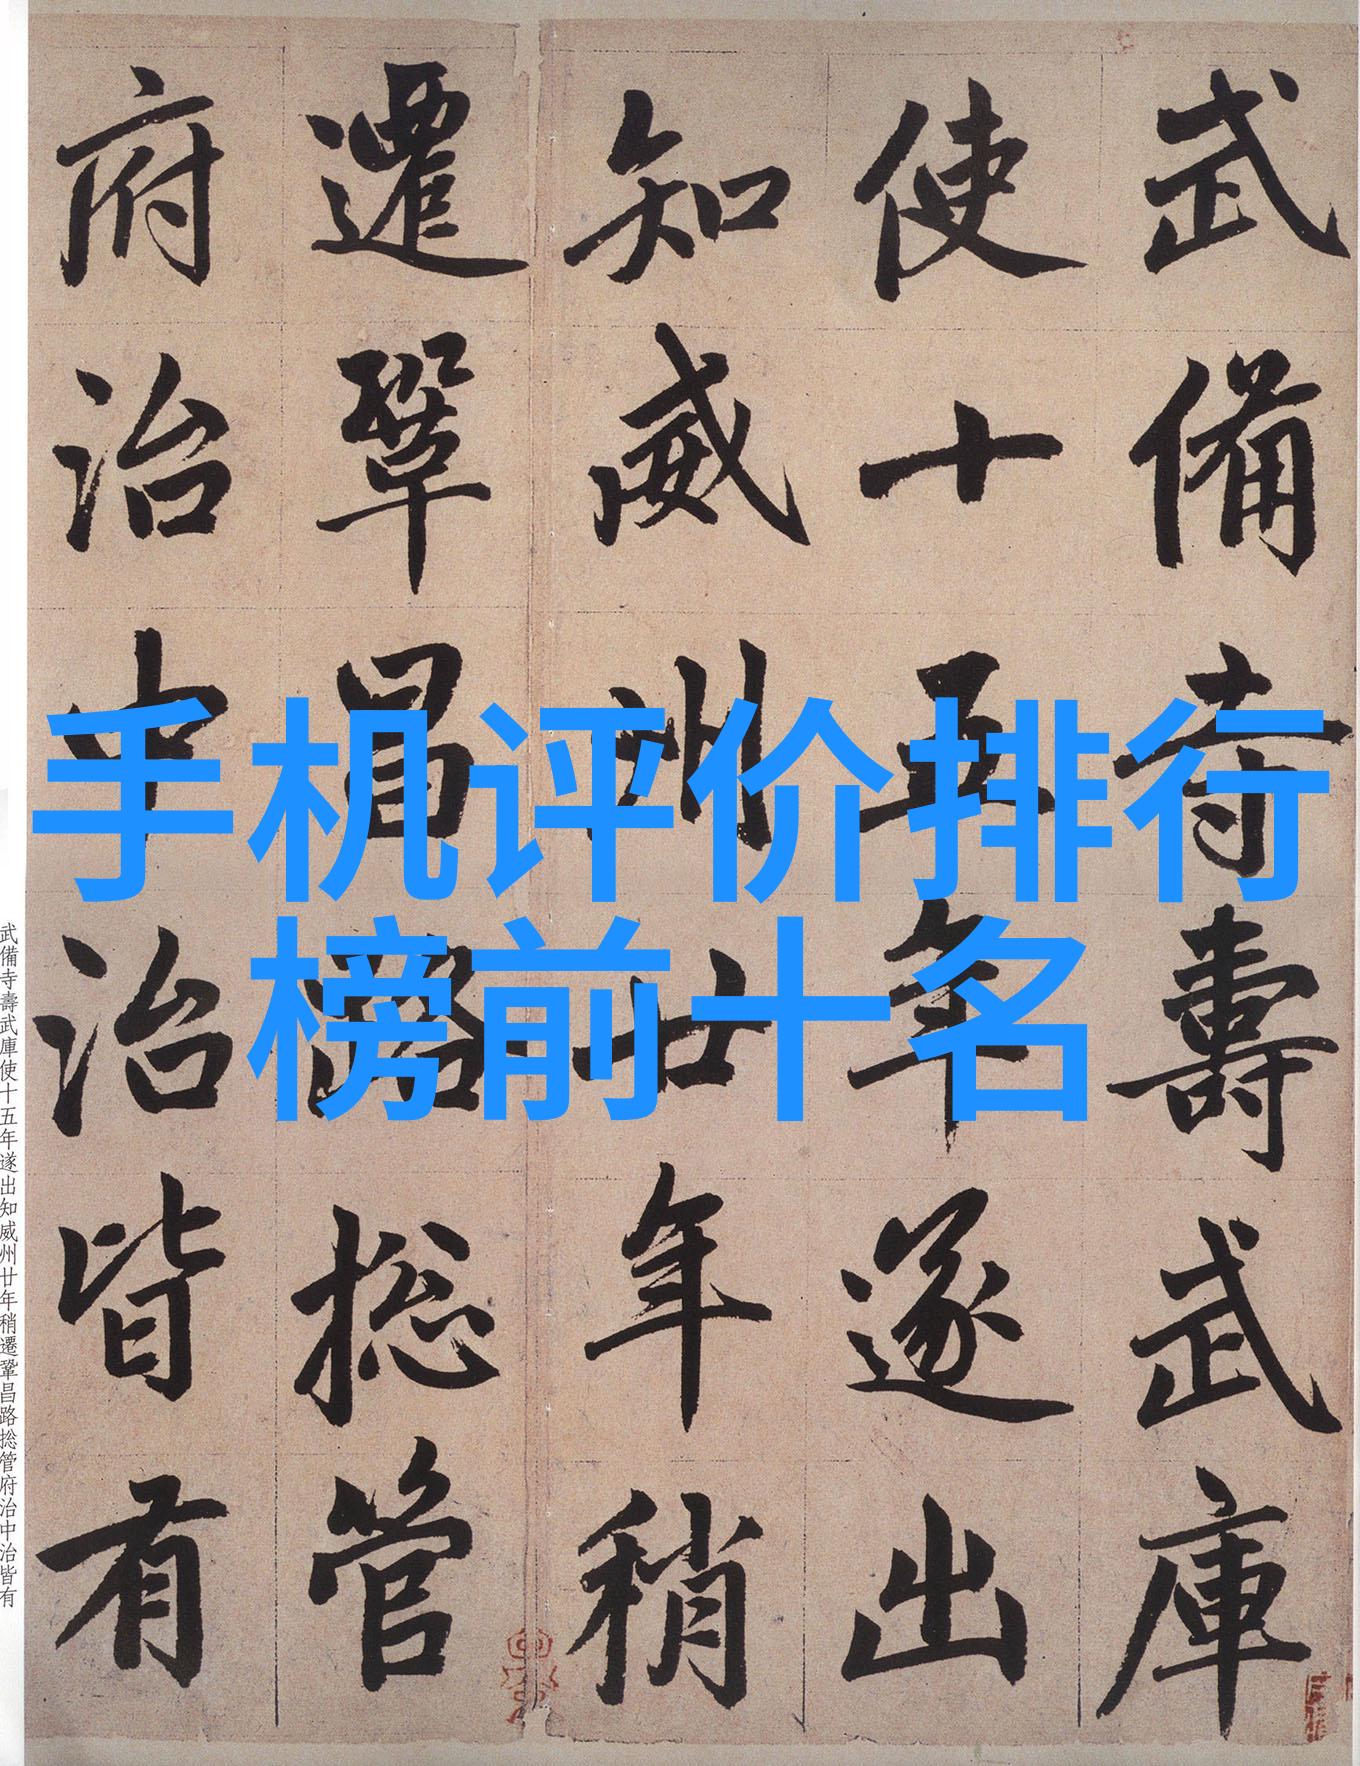 手机评价排行
榜前十名
武備寺壽武庫
使十五年遂出
知威州廿年稍
遷鞏昌路捴管
府治中治皆有
武備寺壽武庫使十五年遂出知威州廿年稍遷鞏昌路捴管府治中治皆有